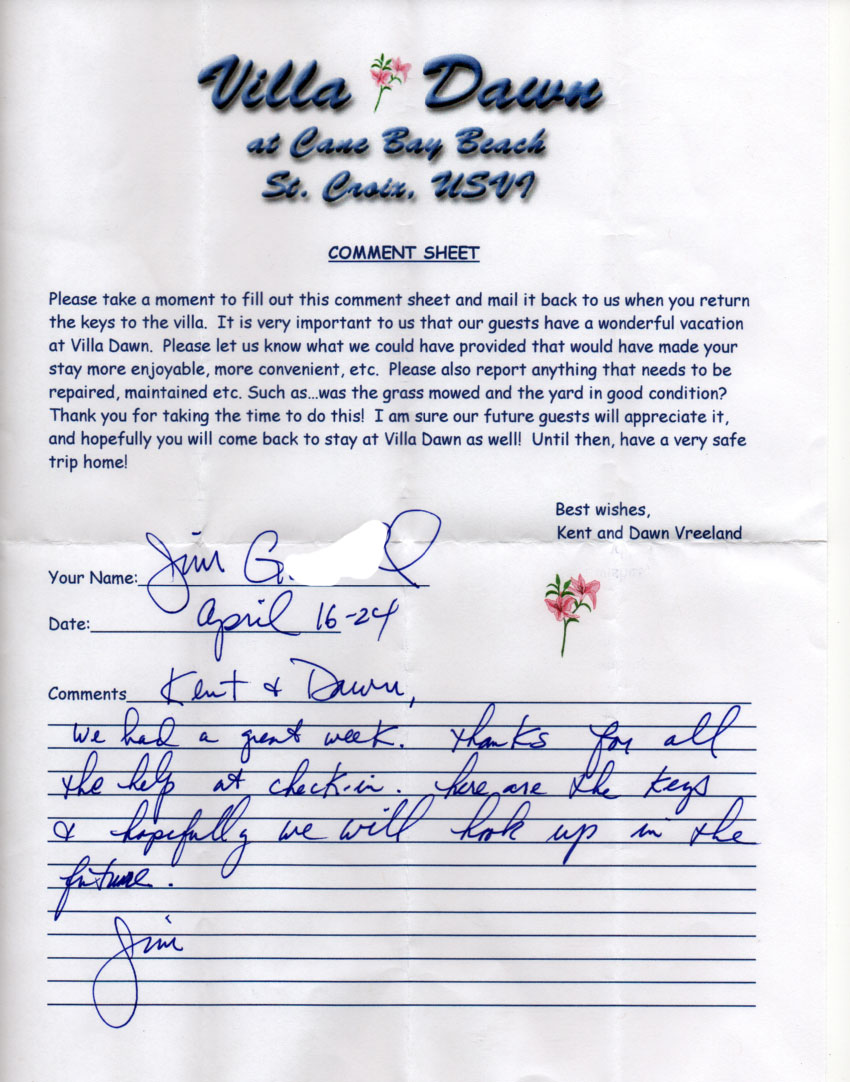 Villa Dawn
at Cane Bay Beach
St. Croix, USVI
COMMENT SHEET
Please take a moment to fill out this comment sheet and mail it back to us when you return
the keys to the villa. It is very important to us that our guests have a wonderful vacation
at Villa Dawn. Please let us know what we could have provided that would have made your
stay more enjoyable, more convenient, etc. Please also report anything that needs to be
repaired, maintained etc. Such as...was the grass mowed and the yard in good condition?
Thank you for taking the time to do this! I am sure our future guests will appreciate it,
and hopefully you will come back to stay at Villa Dawn as well! Until then, have a very safe
trip home!
Best wishes,
Kent and Dawn Vreeland
Your Name: Jim G
Date: April 16-24
Comments Kent & Dawn,
We had a great week. Thanks for all
the help at check-in. here are the keys
& hopefully we will hook up in the
future.
Jim